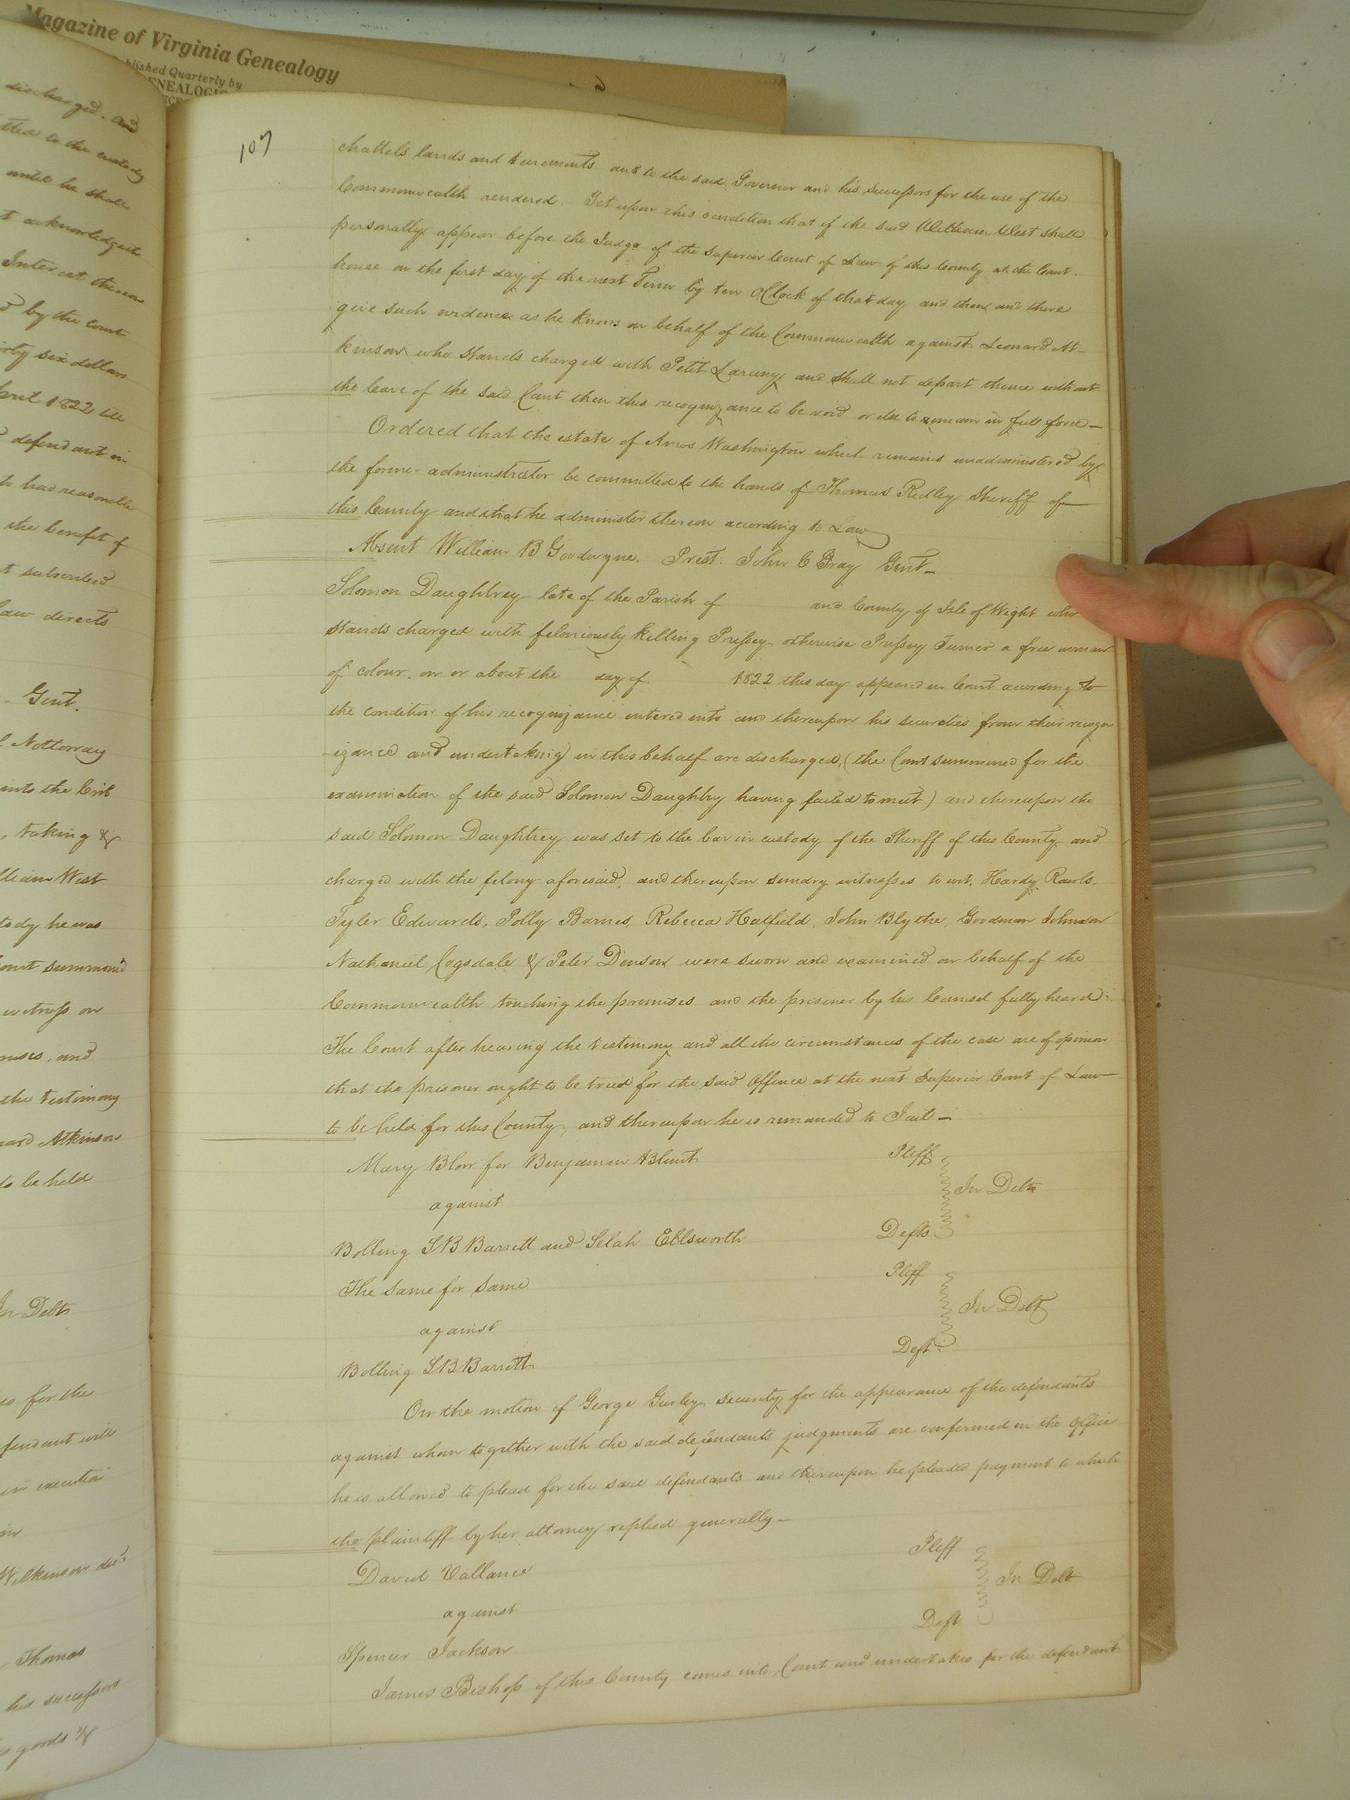 Magazine of Virginia Genealogy
Published Quarterly by
GENEALOGIC
discharged. and
tted to the custody
until he shall
t acknowledged
Interest thereon
by the court
irty six dollars
1822 the
defendant in
had reasonable
the benefit of
t subscribed
law directs
Gent.
Nottoway
into the
taking &
lliam West
tody he was
ourt summon'd
witness on
mises, and
the testimony
nard Atkinson
to be held
In Debt
for the
fendant will
in execution
Wilkinson
Thomas
his successors
goods &
107
chattels lands and tenements and to the said Governor and his successors for the use of the
Commonwealth rendered. Yet upon this condition that if the said William West shall
personally appear before the Judge of the Superior Court of Law of this County at the Court-
house on the first day of the next Term by ten OClock of that day and then and there
give such evidence as he knows on behalf of the Commonwealth against Leonard At-
kinson who stands charged with Petit Larceny and shall not depart thence without
the leave of the said Court then this recognizance to be void or else to remain in full force—
Ordered that the estate of Amos Washington which remains unadministered by
the former administrator be committed to the hands of Thomas Ridley Sheriff of
this County and that he administer thereon according to Law
Absent William B Goodwyne. Prest. John C Gray Gent—
Solomon Daughtrey late of the Parish of and County of Isle of Wight who
stands charged with feloniously killing Prissey otherwise Prissey Turner a free woman
of colour. on or about the day of 1822 this day appeared in Court according to
the condition of his recognizance entered into and thereupon his securities from their recogn
-izance and undertaking in this behalf are discharged, (the Court summoned for the
examination of the said Solomon Daughtry having failed to meet) and thereupon the
said Solomon Daughtrey was set to the bar in custody of the Sheriff of this County and
charged with the felony aforesaid, and thereupon sundry witnesses to wit, Hardy Rawls,
Tyler Edwards, Polly Barnes, Rebecca Hatfield, John Blythe, Goodman Johnson
Nathaniel Cogsdale & Peter Denson were sworn and examined on behalf of the
Commonwealth touching the premises and the prisoner by his Counsel fully heard:
The Court after hearing the testimony and all the circumstances of the case are of opinion
that the prisoner ought to be tried for the said Offence at the next Superior Court of Law
to be held for this County, and thereupon he is remanded to Jail—
Mary Blow for Benjamin Blunt Plff
against In Debt
Bolling S B Barrett and Selah Ellsworth Defts
The same for same Plff
against In Debt
Bolling S B Barrett Deft
On the motion of George Gurley security for the appearance of the defendants
against whom together with the said defendants judgments are confirmed in the Office
he is allowed to plead for the said defendants and thereupon he pleaded payment to which
the plaintiff by her attorney replied generally—
David Vallance Plff
against In Debt
Spencer Jackson Deft
James Bishop of this County comes into Court and undertakes for the defendant